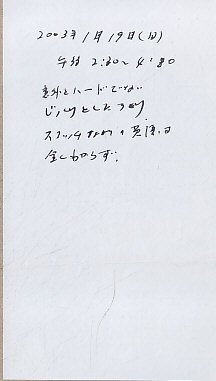 2003年1月19日(日)
午後 2:30〜4:30
意外とハードでない
じっくりとした
スコッチなまりの英語は
全くわからず。